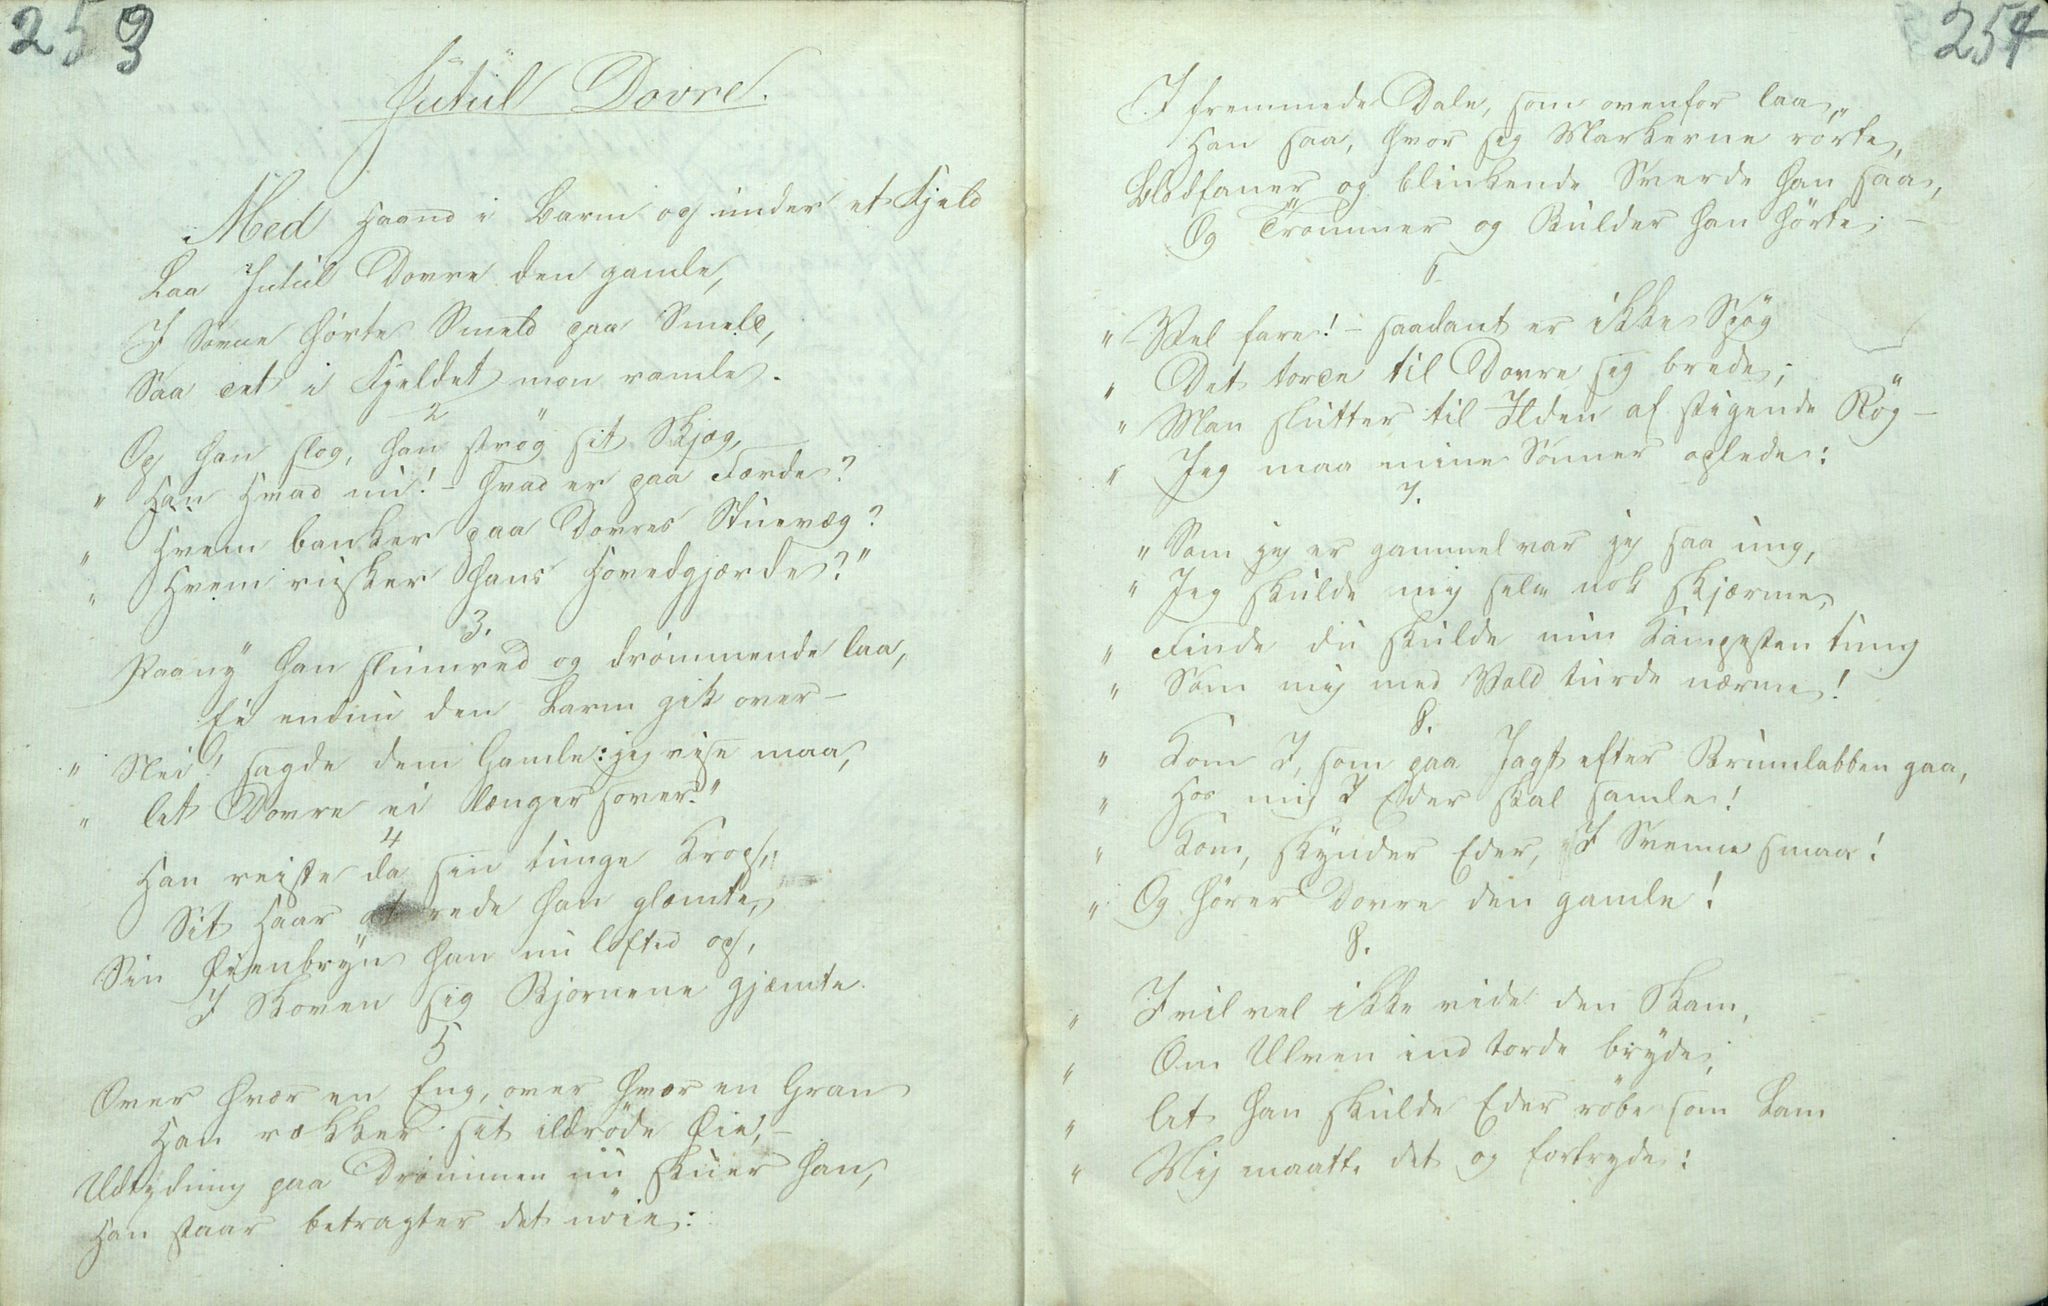 253
Jutul Dovre.
Med Haand i Barm og under et Fjeld
Laa Jutul Dovre den gamle,
I Søvne hørte Smeld paa Smeld,
Saa det i Fjeldet mon ramle.
2
Op han slog, han strög sit Skjæg,
" Han Hvad nu! – hvad er paa Færde?
" Hvem banker paa Dovres Stuevæg?
" Hvem rusker hans Hovedgjærde?"
3.
Paany han slumred og drømmende laa,
Ei endnu den Larm gik over –
" Nei! sagde dem Gamle: jeg reise maa,
" let Dovre ei længer sover."
4
Han reiste da sin tunge Krop,
Sit Haar at rede han glemte,
Sin Øienbryn han nu lofted op,
I Skoven sig Bjornene gjemte.
5
Over hver en Eng, over hver en Gran
Han rækker sit ildröde Øie, –
Udtydning paa Drømmen nu skuer han,
Han staar betragter det nöie:
254
I fremmede Dale, som ovenfor laa,
Han saa, hvor sig Markerne rörte,
Blodfaner og blinkende Sverde han saa,
Og Trommer og Bulder han hörte; –
6
" – Vel fare! – saadant er ikke Spög
" Det torde til Dovre sig brede;
" Man slutter til Ilden af stigende Rög –
" Jeg maa mine Sönner oplede:
7.
" Som jeg er gammel var jeg saa ung,
" Jeg skulde mig selv nok skjærme,
" Finde du skulde min Kampesten tung
" Som mig med Vold turde nærme!
8.
" Kom I, som paa Jagt efter Brumlabben gaa,
" Hos mig I Eder skal samle!
" Kom, skynder Eder, I Svenne smaa!
" Og hører Dovre den gamle!
8.
" I vil vel ikke vide den Skam,
" Om Ulven ind torde bryde;
" let han skulde Eder röbe som Lam
" Mig maatte det og fortryde: